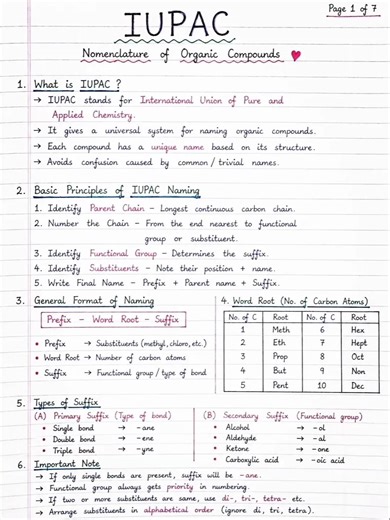 Page 1 of 7
IUPAC
Nomenclature of Organic Compounds
1. What is IUPAC ?
→ IUPAC stands for International Union of Pure and
Applied Chemistry.
→ It gives a universal system for naming organic compounds.
→ Each compound has a unique name based on its structure.
→ Avoids confusion caused by common / trivial names.
2. Basic Principles of IUPAC Naming
1. Identify Parent Chain – Longest continuous carbon chain.
2. Number the Chain – From the end nearest to functional
group or substituent.
3. Identify Functional Group – Determines the suffix.
4. Identify Substituents – Note their position + name.
5. Write Final Name – Prefix + Parent name + Suffix.
3. General Format of Naming
Prefix – Word Root – Suffix
• Prefix → Substituents (methyl, chloro, etc.)
• Word Root → Number of carbon atoms
• Suffix → Functional group / type of bond
4. Word Root (No. of Carbon Atoms)
No. of C Root No. of C Root
1 Meth 6 Hex
2 Eth 7 Hept
3 Prop 8 Oct
4 But 9 Non
5 Pent 10 Dec
5. Types of Suffix
(A) Primary Suffix (Type of bond)
• Single bond → -ane
• Double bond → -ene
• Triple bond → -yne
(B) Secondary Suffix (Functional group)
• Alcohol → -ol
• Aldehyde → -al
• Ketone → -one
• Carboxylic acid → -oic acid
6. Important Note
→ If only single bonds are present, suffix will be -ane.
→ Functional group always gets priority in numbering.
→ If two or more substituents are same, use di-, tri-, tetra- etc.
→ Arrange substituents in alphabetical order (ignore di, tri, tetra).